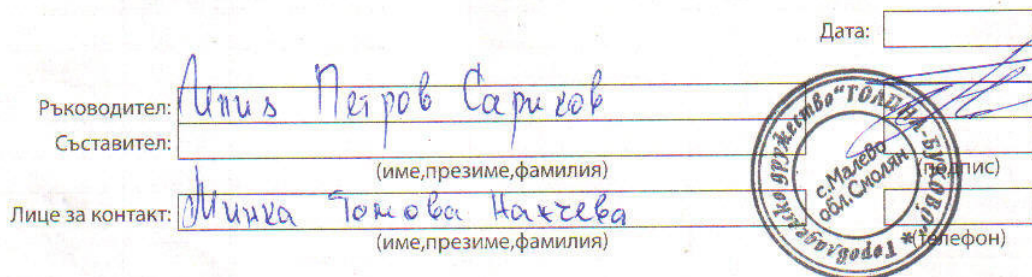 Дата:
Ръководител: Петров Сариков
Съставител:
(име,презиме,фамилия)
(подпис)
Лице за контакт: Минка Томова Накчева
(име,презиме,фамилия)
(телефон)
Горовладелско дружество "ТОЛИНА-БУКОВО" *
с.Малево
обл.Смолян